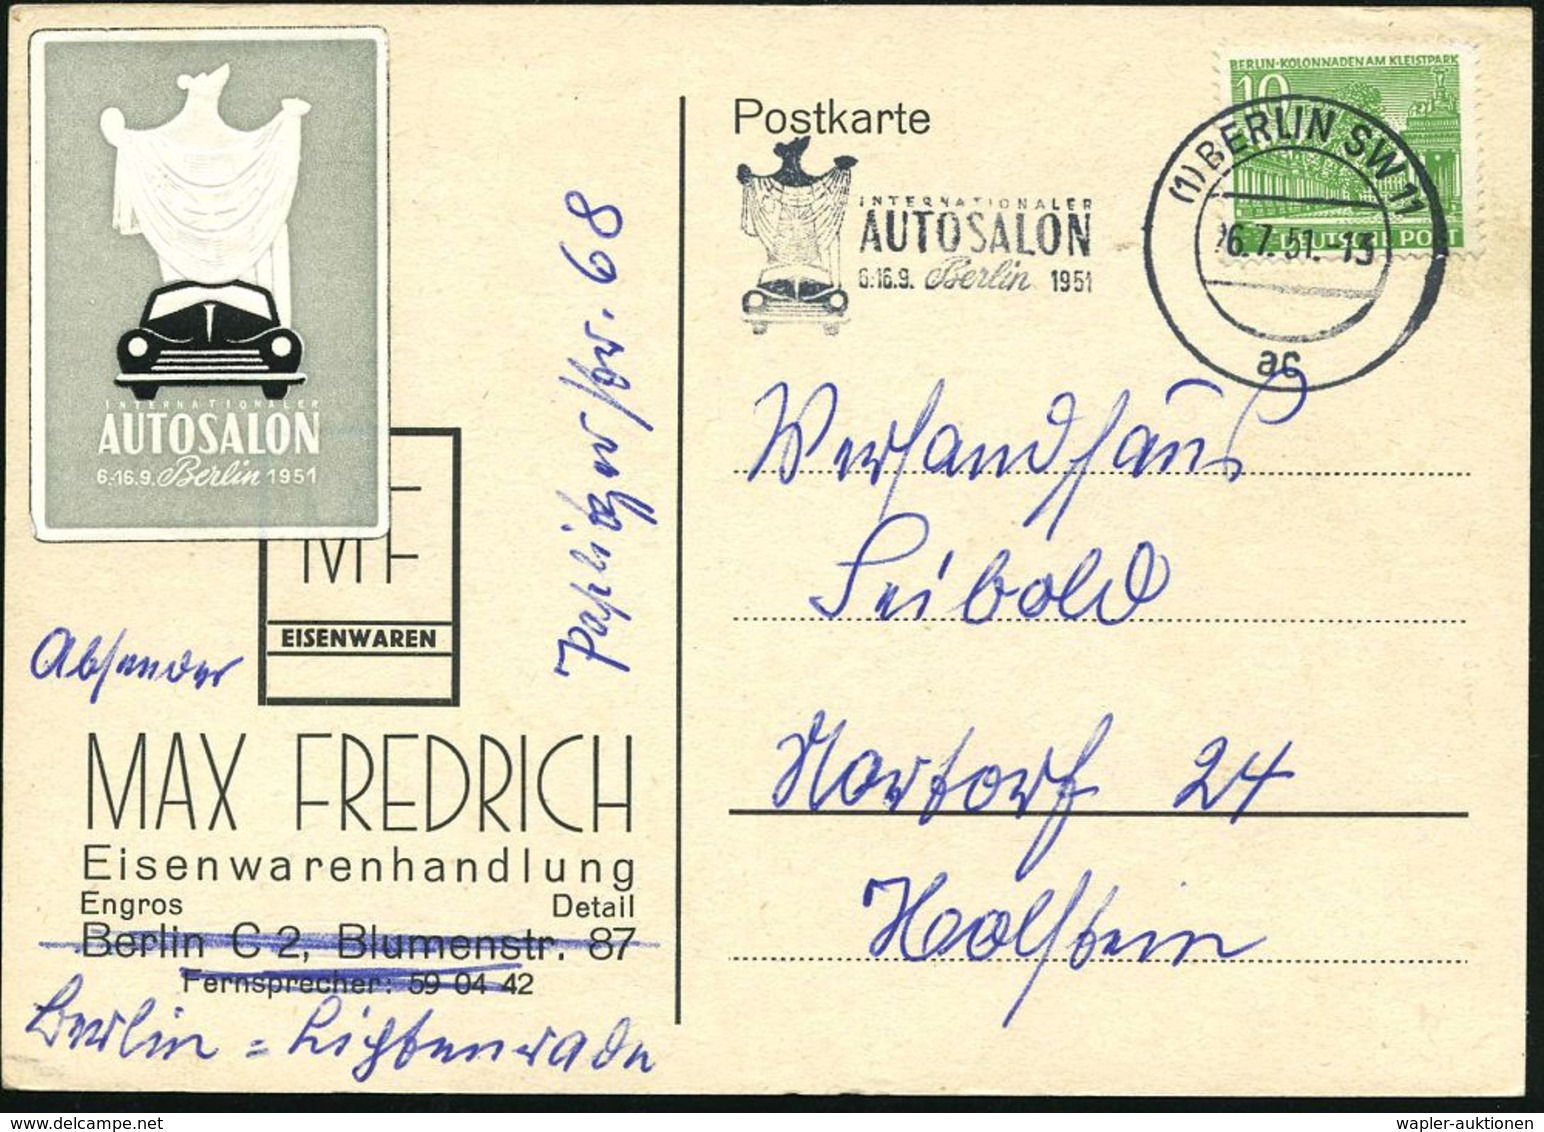 INTERNATIONALER
AUTOSALON
6.-16.9. Berlin 1951
MF
EISENWAREN
Absender
MAX FREDRICH
Eisenwarenhandlung
Engros Detail
Berlin C 2, Blumenstr. 87
Fernsprecher: 59 04 42
Berlin = Lichtenrade
Paplitzer Str. 68
Postkarte
INTERNATIONALER
AUTOSALON
6.-16.9. Berlin 1951
BERLIN·KOLONNADEN AM KLEISTPARK
10
DEUTSCHE POST
(1) BERLIN SW 11
26.7.51.-13
ac
Versandhaus
Seibold
Nortorf 24
Holstein
wapler-auktionen